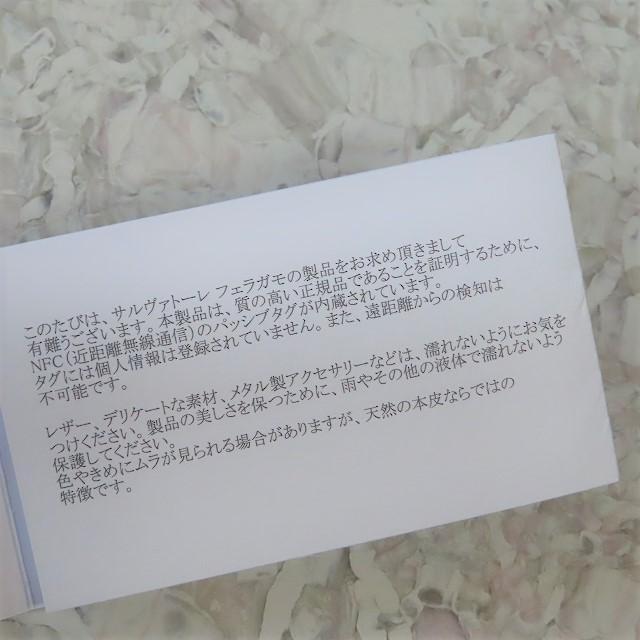 このたびは、サルヴァトーレ フェラガモの製品をお求め頂きまして
有難うございます。本製品は、質の高い正規品であることを証明するために、
NFC（近距離無線通信）のパッシブタグが内蔵されています。
タグには個人情報は登録されていません。また、遠距離からの検知は
不可能です。
レザー、デリケートな素材、メタル製アクセサリーなどは、濡れないようにお気を
つけください。製品の美しさを保つために、雨やその他の液体で濡れないよう
保護してください。
色やきめにムラが見られる場合がありますが、天然の本皮ならではの
特徴です。